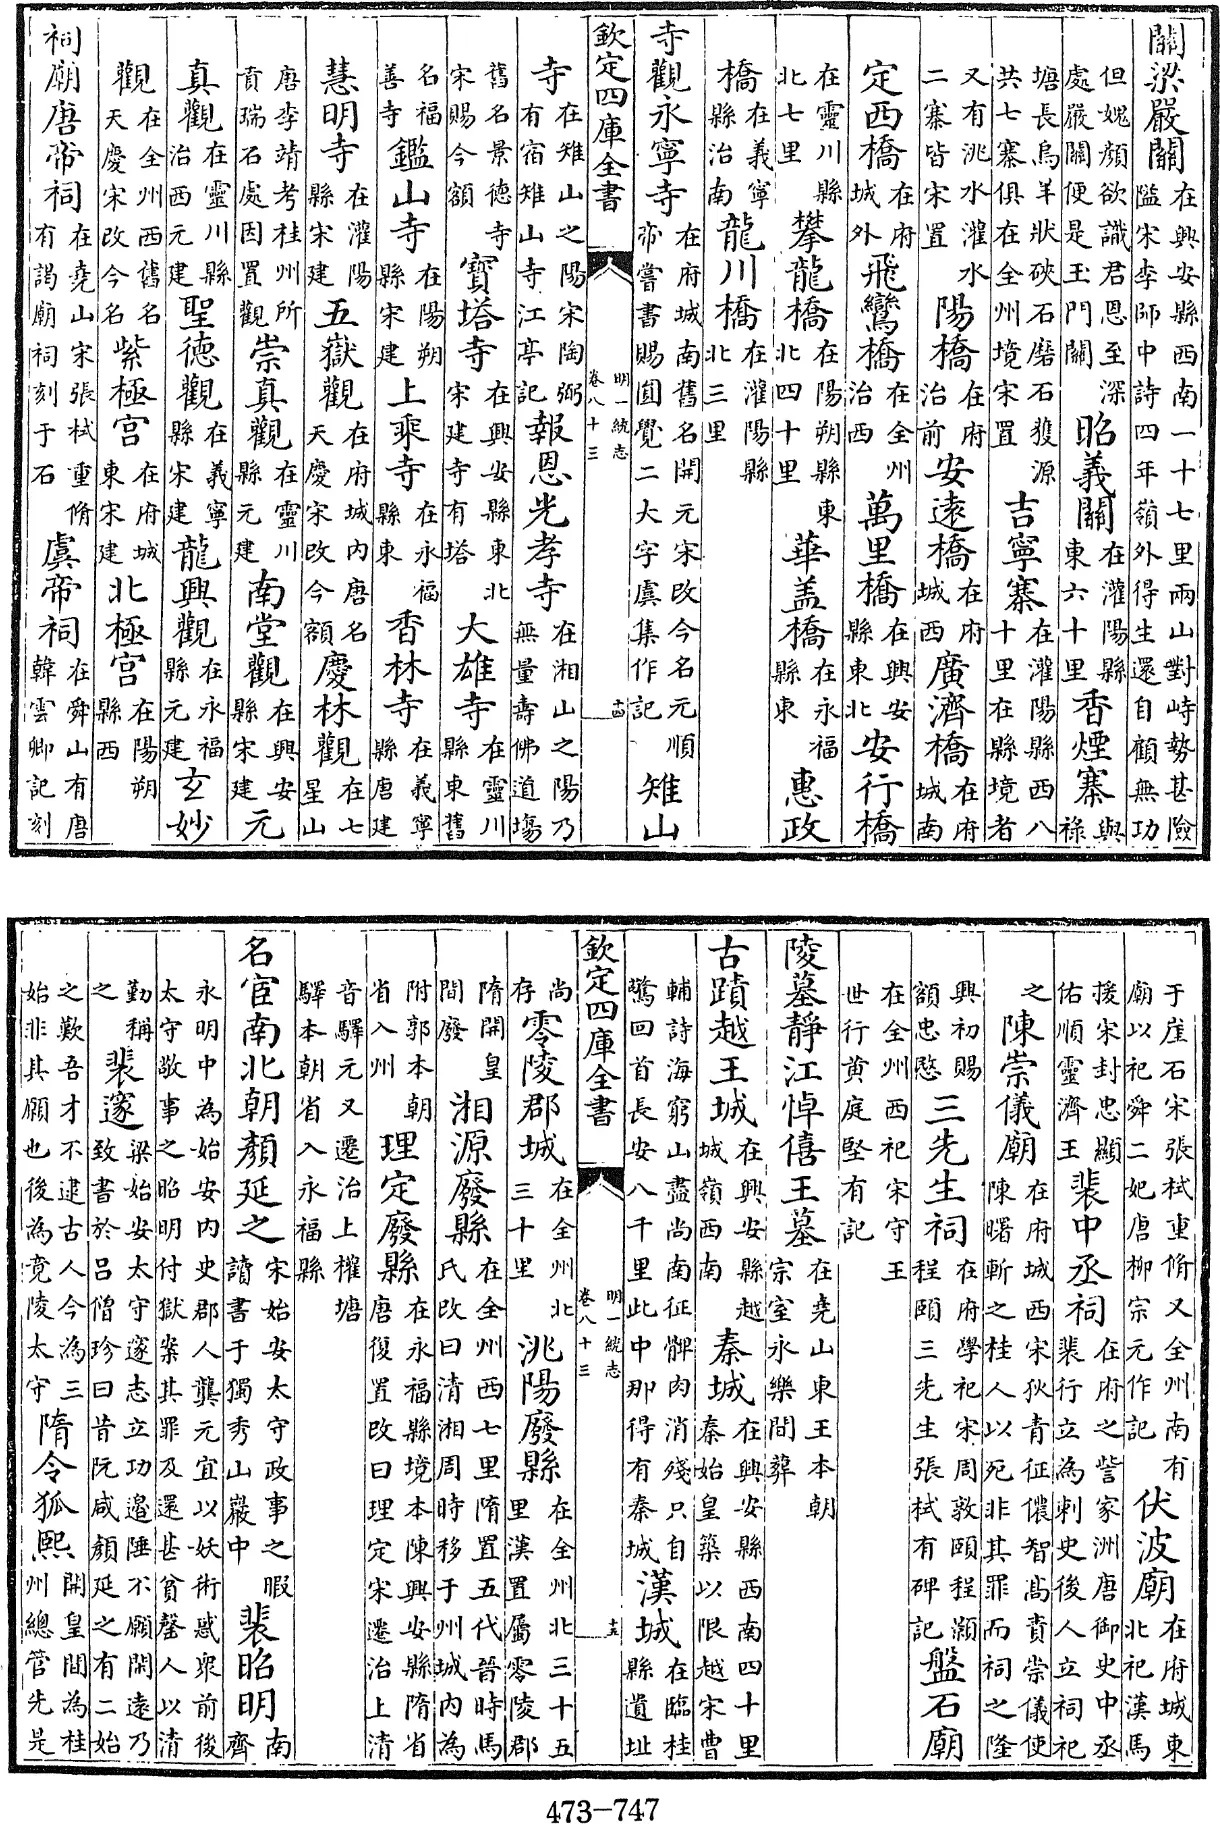 關梁嚴關在興安縣西南一十七里兩山對峙勢甚險隘宋李師中詩四年嶺外得生還自顧無功
但媿顔欲識君恩至深處嚴關便是玉門關昭義關在灌陽縣東六十里香煙寨與祿
塘長烏羊狀硤石磨石獲源共七寨俱在全州境宋置吉寧寨在灌陽縣西八十里在縣境者
又有洮水灌水二寨皆宋置陽橋在府治前安遠橋在府城西廣濟橋在府城南
定西橋在府城外飛鸞橋在全州治西萬里橋在興安縣東北安行橋
在靈川縣北七里攀龍橋在陽朔縣東北四十里華盖橋在永福縣東惠政
橋在義寧縣治南龍川橋在灌陽縣北三里
寺觀永寧寺在府城南舊名開元宋改今名元順帝嘗書賜圓覺二大字虞集作記雉山
欽定四庫全書 明一統志 卷八十三 十四
寺在雉山之陽宋陶弼有宿雉山寺江亭記報恩光孝寺在湘山之陽乃無量壽佛道場
舊名景德寺宋賜今額寳塔寺在興安縣東北宋建寺有塔大雄寺在靈川縣東舊
名福善寺鑑山寺在陽朔縣宋建上乘寺在永福縣東香林寺在義寧縣唐建
慧明寺在灌陽縣宋建五嶽觀在府城内唐名天慶宋改今額慶林觀在七星山
唐李靖考桂州所賁瑞石處因置觀崇真觀在靈川縣元建南堂觀在興安縣宋建元
真觀在靈川縣治西元建聖德觀在義寧縣宋建龍興觀在永福縣元建玄妙
觀在全州西舊名天慶宋改今名紫極宫在府城東宋建北極宫在陽朔縣西
祠廟唐帝祠在堯山宋張栻重脩有謁廟祠刻于石虞帝祠在舜山有唐韓雲卿記刻
于崖石宋張栻重脩又全州南有廟以祀舜二妃唐柳宗元作記伏波廟在府城東北祀漢馬
援宋封忠顯佑順靈濟王裴中丞祠在府之訾家洲唐御史中丞裴行立為刺史後人立祠祀
之陳崇儀廟在府城西宋狄青征儂智高責崇儀使陳曙斬之桂人以死非其罪而祠之隆
興初賜額忠愍三先生祠在府學祀宋周敦頤程顥程頤三先生張栻有碑記盤石廟
在全州西祀宋守王世行黄庭堅有記
陵墓靜江悼僖王墓在堯山東王本朝宗室永樂間葬
古蹟越王城在興安縣越城嶺西南秦城在興安縣西南四十里秦始皇築以限越宋曹
輔詩海窮山盡尚南征髀肉消殘只自驚回首長安八千里此中那得有秦城漢城在臨桂縣遺址
欽定四庫全書 明一統志 卷八十三 十五
尚存零陵郡城在全州北三十里洮陽廢縣在全州北三十五里漢置屬零陵郡
隋開皇間廢湘源廢縣在全州西七里隋置五代晉時馬氏改曰清湘周時移于州城内為
附郭本朝省入州理定廢縣在永福縣境本陳興安縣隋省唐復置改曰理定宋遷治上清
音驛元又遷治上櫂塘驛本朝省入永福縣
名宦南北朝顔延之宋始安太守政事之暇讀書于獨秀山巖中裴昭明南齊
永明中為始安内史郡人龔元宜以妖術惑衆前後太守敬事之昭明付獄案其罪及還甚貧罄人以清
勤稱之裴邃梁始安太守邃志立功邉陲不願閑遠乃致書於吕僧珍曰昔阮咸顔延之有二始
之歎吾才不逮古人今為三始非其願也後為竟陵太守隋令狐熙開皇間為桂州總管先是
473-747